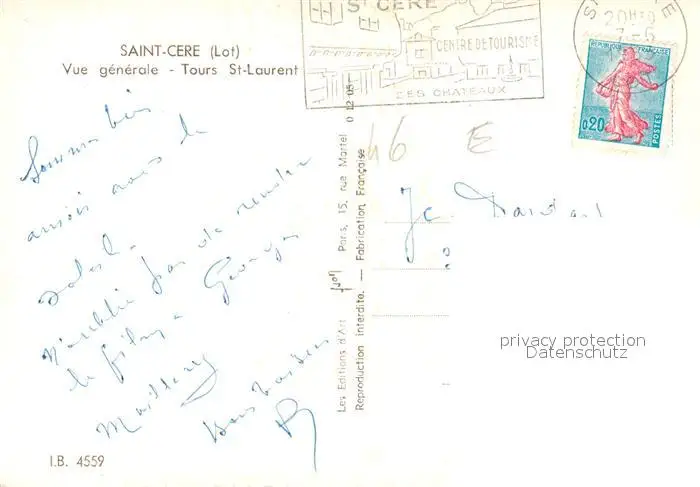 SAINT-CERE (Lot)
Vue générale - Tours St-Laurent
St CERE
CENTRE DE TOURISME
DES CHATEAUX
20H30
7-6
REPUBLIQUE FRANÇAISE
0,20
POSTES
46 E
Sommes bien
avec le
soleil
n'oublie pas de rendre
le film a Georges
Bons baisers
Les Editions d'Art
Paris, 15, rue Martel
Reproduction interdite. — Fabrication Française
privacy protection
Datenschutz
I.B. 4559